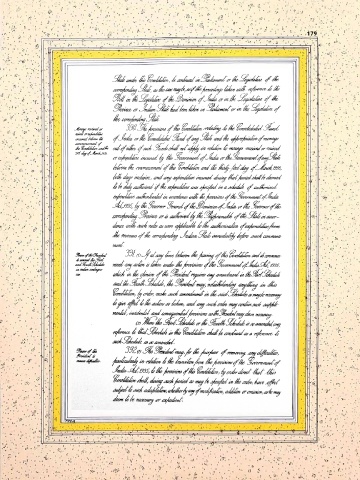 179
State under this Constitution, be continued in Parliament or the Legislature of the
corresponding State, as the case may be, as if the proceedings taken with reference to the
Bill in the Legislature of the Dominion of India or in the Legislature of the
Province or Indian State had been taken in Parliament or in the Legislature of
the corresponding State.
The provisions of this Constitution relating to the Consolidated Fund
of India or the Consolidated Fund of any State and the appropriation of moneys
out of either of such Funds shall not apply in relation to moneys received or raised
or expenditure incurred by the Government of India or the Government of any State
between the commencement of this Constitution and the thirty first day of March, 1950,
both days inclusive, and any expenditure incurred during that period shall be deemed
to be duly authorised if the expenditure was specified in a schedule of authorised
expenditure authenticated in accordance with the provisions of the Government of India
Act, 1935, by the Governor General of the Dominion of India or the Governor of the
corresponding Province or is authorised by the Rajpramukh of the State in accor-
dance with such rules as were applicable to the authorisation of expenditure from
the revenues of the corresponding Indian State immediately before such commence-
ment.
If at any time between the passing of this Constitution and its commence-
ment any action is taken under the provisions of the Government of India Act, 1935,
which in the opinion of the President requires any amendment in the First Schedule
and the Fourth Schedule, the President may, notwithstanding anything in this
Constitution, by order, make such amendments in the said Schedules as may be necessary
to give effect to the action so taken, and any such order may contain such supple-
mental, incidental and consequential provisions as the President may deem necessary.
(2) When the First Schedule or the Fourth Schedule is so amended, any
reference to that Schedule in this Constitution shall be construed as a reference to
such Schedule as so amended.
The President may, for the purpose of removing any difficulties,
particularly in relation to the transition from the provisions of the Government of
India Act, 1935, to the provisions of this Constitution, by order direct that this
Constitution shall, during such period as may be specified in the order, have effect
subject to such adaptations, whether by way of modification, addition or omission, as he may
deem to be necessary or expedient: